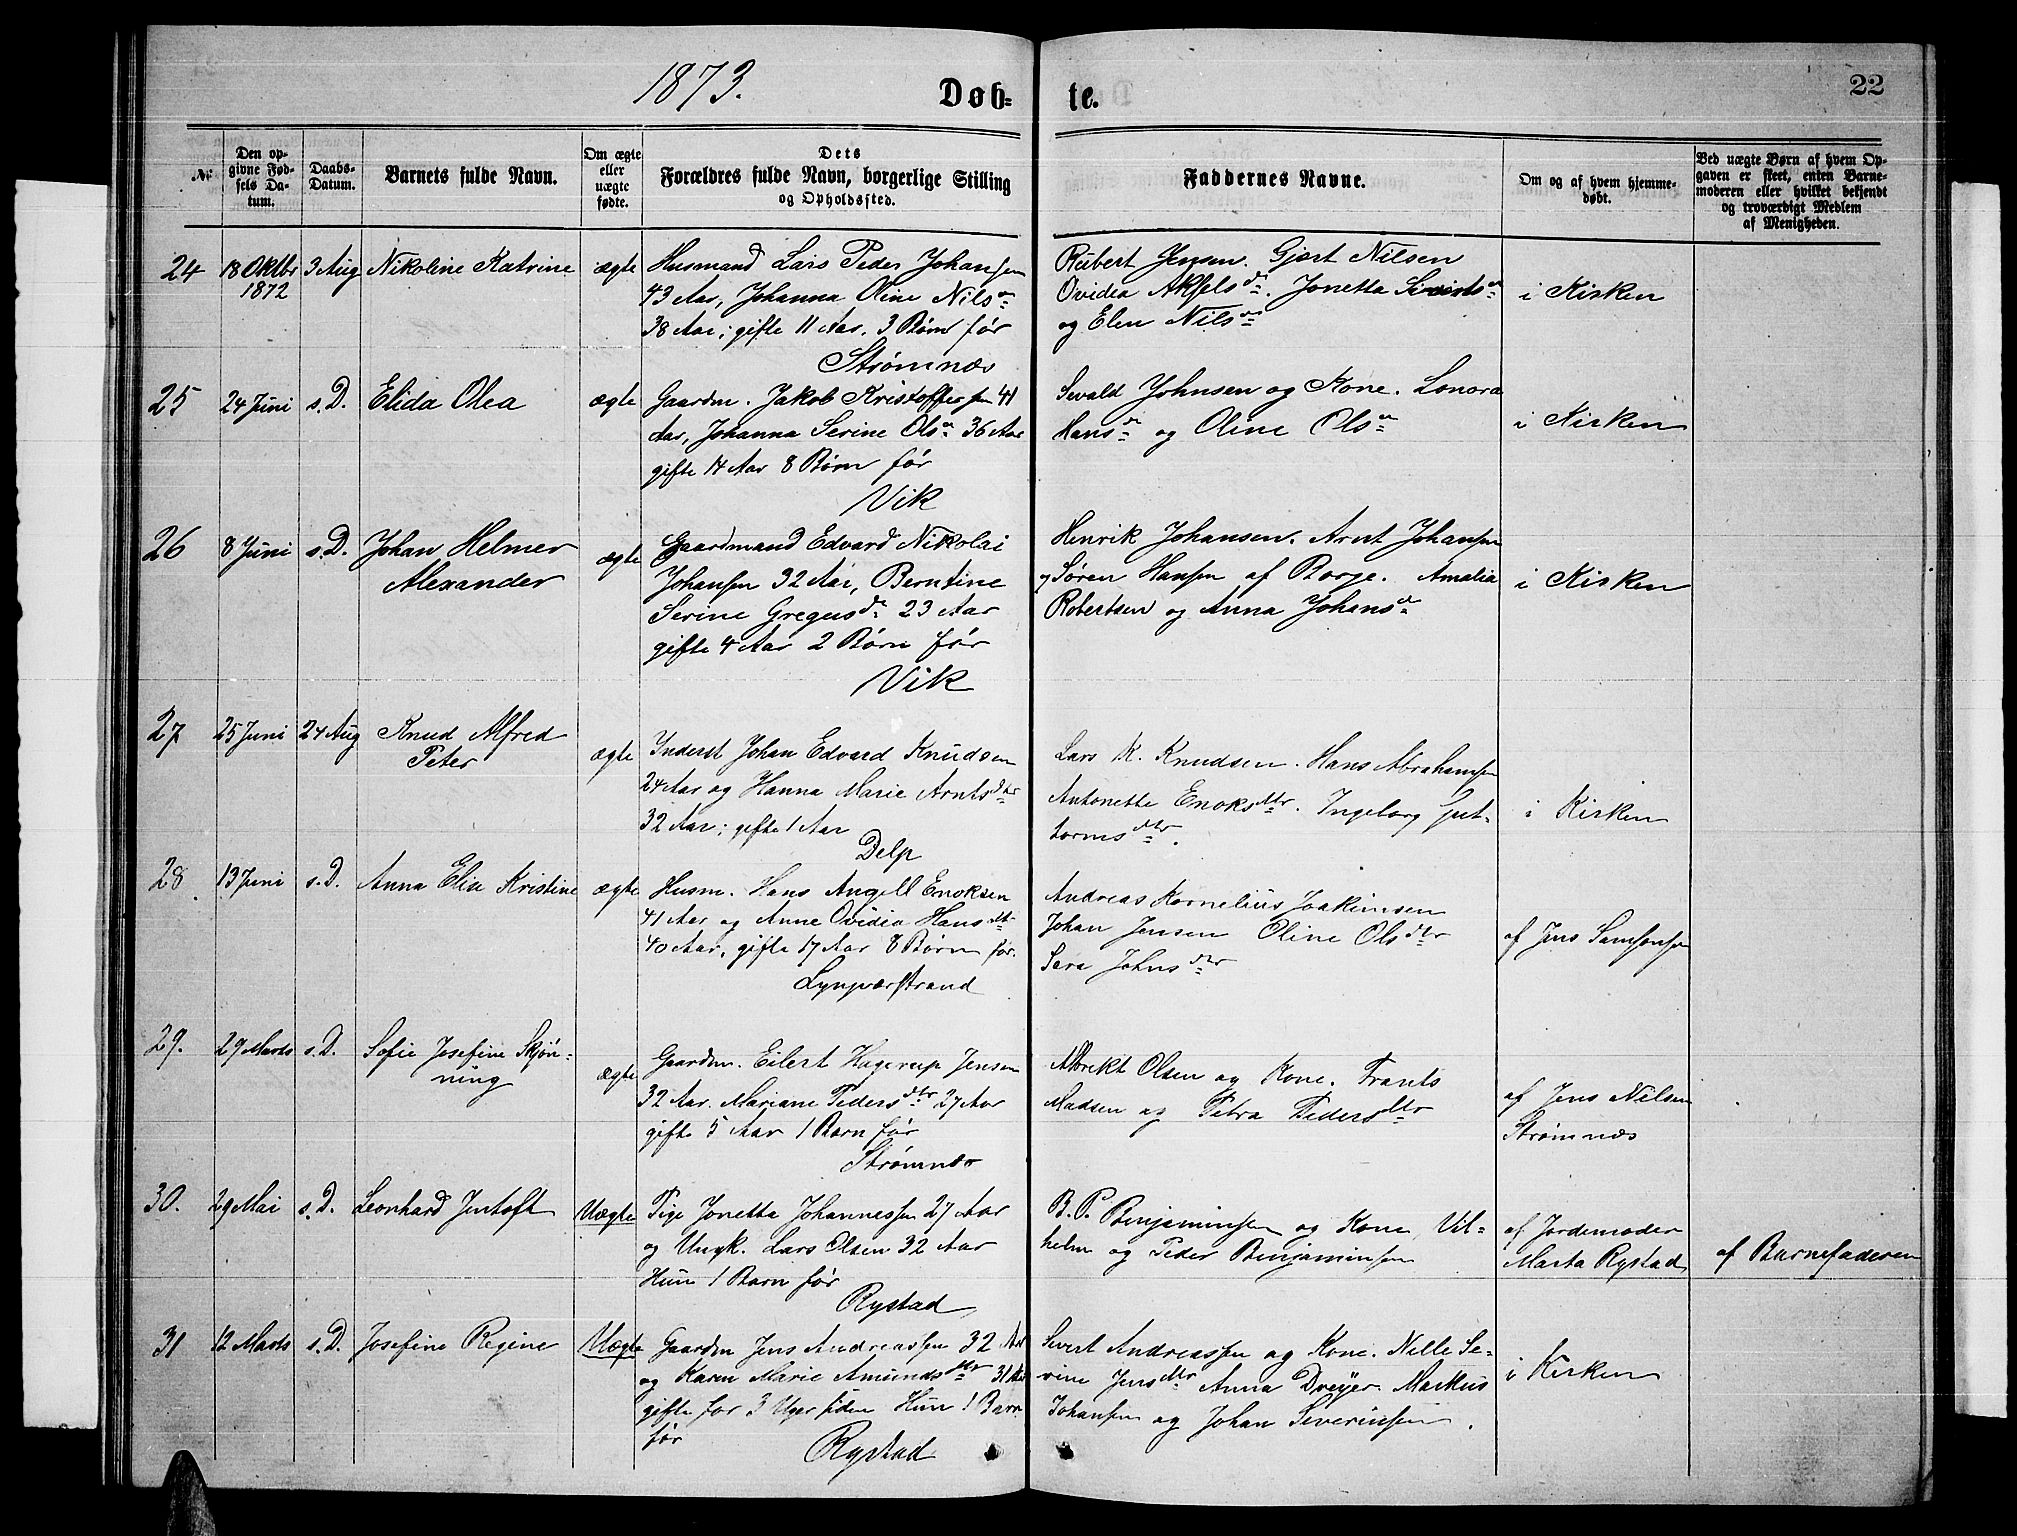 1873.
Døb-
te.
22
№
Den op-
givne Fød-
sels Da-
tum.
Daabs-
Datum.
Barnets fulde Navn.
Om ægte
eller
uægte
fødte.
Dets
Forældres fulde Navn, borgerlige Stilling
og Opholdssted.
Faddernes Navne.
Om og af hvem hjemme-
døbt.
Ved uægte Børn af hvem Op-
gaven er skeet, enten Barne-
moderen eller hvilket bekjendt
og troværdigt Medlem
af Menigheden.
24
18 Oktbr
1872
3 Aug
Nikoline Katrine
ægte
Husmand Lars Peder Johansen
43 Aar, Johanna Oline Nilsdr
38 Aar; gifte 11 Aar. 3 Børn før
Strømnæs
Rubert Jensen. Gjært Nilsen
Ovidia Akselsdr. Jonetta Sivertsdr
og Elen Nilsdr
i Kirken
25
24 Juni
s.D.
Elida Olea
ægte
Gaardm. Jakob Kristoffersen 41
Aar, Johanna Serine Olsdr 36 Aar
gifte 14 Aar 8 Børn før
Vik
Sevald Johnsen og Kone. Lonora
Hansdr og Oline Olsdr
i Kirken
26
8 Juni
s.D.
Johan Helmer
Alexander
ægte
Gaardmand Edvard Nikolai
Johansen 32 Aar, Berntine
Serine Gregusdr 23 Aar
gifte 4 Aar 2 Børn før
Vik
Henrik Johansen. Arnt Johansen
Søren Hansen af Borge. Amalia
Robertsen og Anna Johansdr
i Kirken
27
25 Juni
24 Aug
Knud Alfred
Peter
ægte
Inderst Johan Edvard Knudsen
24 Aar og Hanna Marie Arntsdtr
32 Aar; gifte 1 Aar
Delp
Lars K. Knudsen. Hans Abrahamsen
Antonette Enoksdtr. Ingeborg Gut-
tormsdtr.
i Kirken
28
13 Juni
s.D.
Anna Elise Kristine
ægte
Husm. Hans Angell Enoksen
41 Aar og Anne Ovidia Hansdtr
40 Aar, gifte 17 Aar 8 Børn før.
Lyngværstrand
Andreas Kornelius Joakimsen
Johan Jensen Oline Olsdtr
Sera Johnsdtr
af Jens Samsonsen
29.
29 Marts
s.D.
Sofie Josefine Skjøn-
ning
Ægte
Gaardm. Eilert Hagerup Jensen
32 Aar. Mariane Pedersdtr 27 Aar
gifte 5 Aar 1 Barn før
Strømnæs
Albrekt Olsen og Kone. Frants
Madsen og Petra Pedersdtr
af Jens Nilsen
Strømnæs
30.
29 Mai
s.D.
Leonhard Jentoft
Uægte
Pige Jonetta Johannessen 27 Aar
og Ungk. Lars Olsen 32 Aar
Hun 1 Barn før
Rystad
B. P. Benjaminsen og Kone, Vil-
helm og Peder Benjaminsen
af Jordemoder
Marta Rystad
af Barnefaderen
31
12 Marts
s.D.
Josefine Regine
Uægte
Gaardm Jens Andreassen 32 Aar
og Karen Marie Amundsdtr 31 Aar
gifte for 3 Uger siden Hun 1 Barn
før
Rystad
Sivert Andreassen og Kone. Nelle Se-
rine Jensdtr Anna Dreyer. Markus
Johansen og Johan Severinsen.
i Kirken